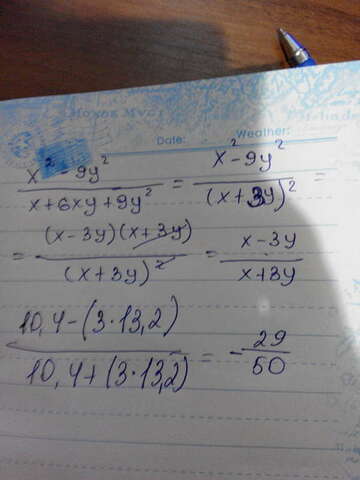 Date: Weather:
x² - 9y² / x+6xy+9y² = x²-9y² / (x+3y)² =
= (x-3y)(x+3y) / (x+3y)² = x-3y / x+3y
10,4-(3·13,2) / 10,4+(3·13,2) = - 29/50